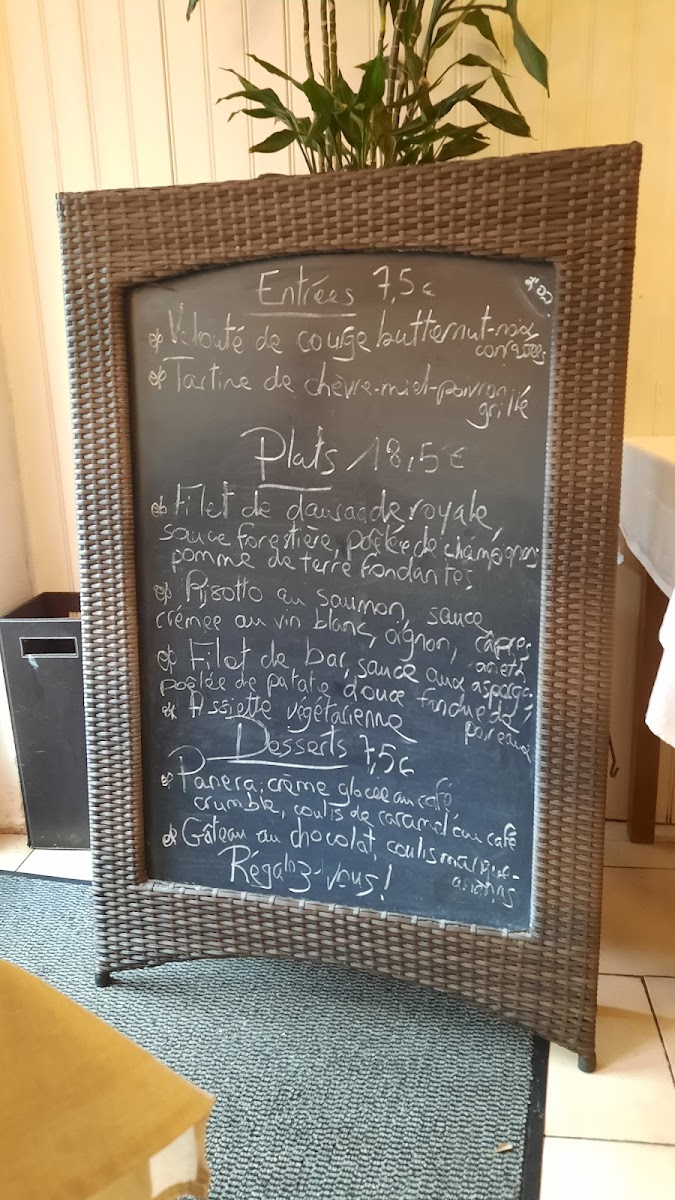 Entrées 7,5€
Velouté de courge butternut-noix
concassées
Tartine de chèvre-miel-poivron
grillé
Plats 18,5€
Filet de daurade royale,
sauce forestière, poêlée de champignons
pomme de terre fondantes
Risotto au saumon, sauce
crémée au vin blanc, oignon, câpres,
aneth
Filet de bar, sauce aux asperges,
poêlée de patate douce fondue de
poireaux
Assiette végétarienne
Desserts 7,5€
crème glacée au café
crumble, coulis de caramel au café
Gâteau au chocolat, coulis mangue-
Régalez-vous!